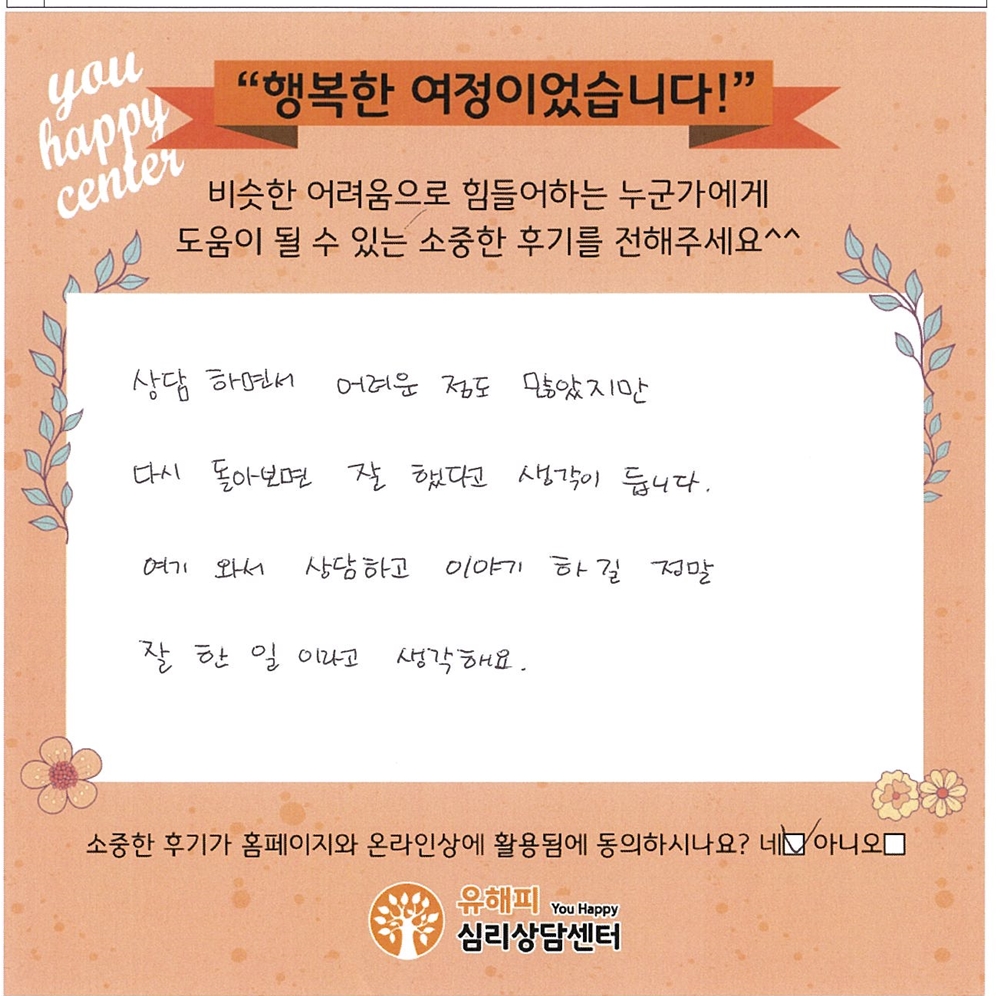 you
happy
center
“행복한 여정이었습니다!”
비슷한 어려움으로 힘들어하는 누군가에게
도움이 될 수 있는 소중한 후기를 전해주세요^^
상담 하면서 어려운 점도 많았지만
다시 돌아보면 잘 했다고 생각이 듭니다.
여기 와서 상담하고 이야기 하길 정말
잘 한 일 이라고 생각해요.
소중한 후기가 홈페이지와 온라인상에 활용됨에 동의하시나요? 네☑ 아니오□
유해피 You Happy
심리상담센터